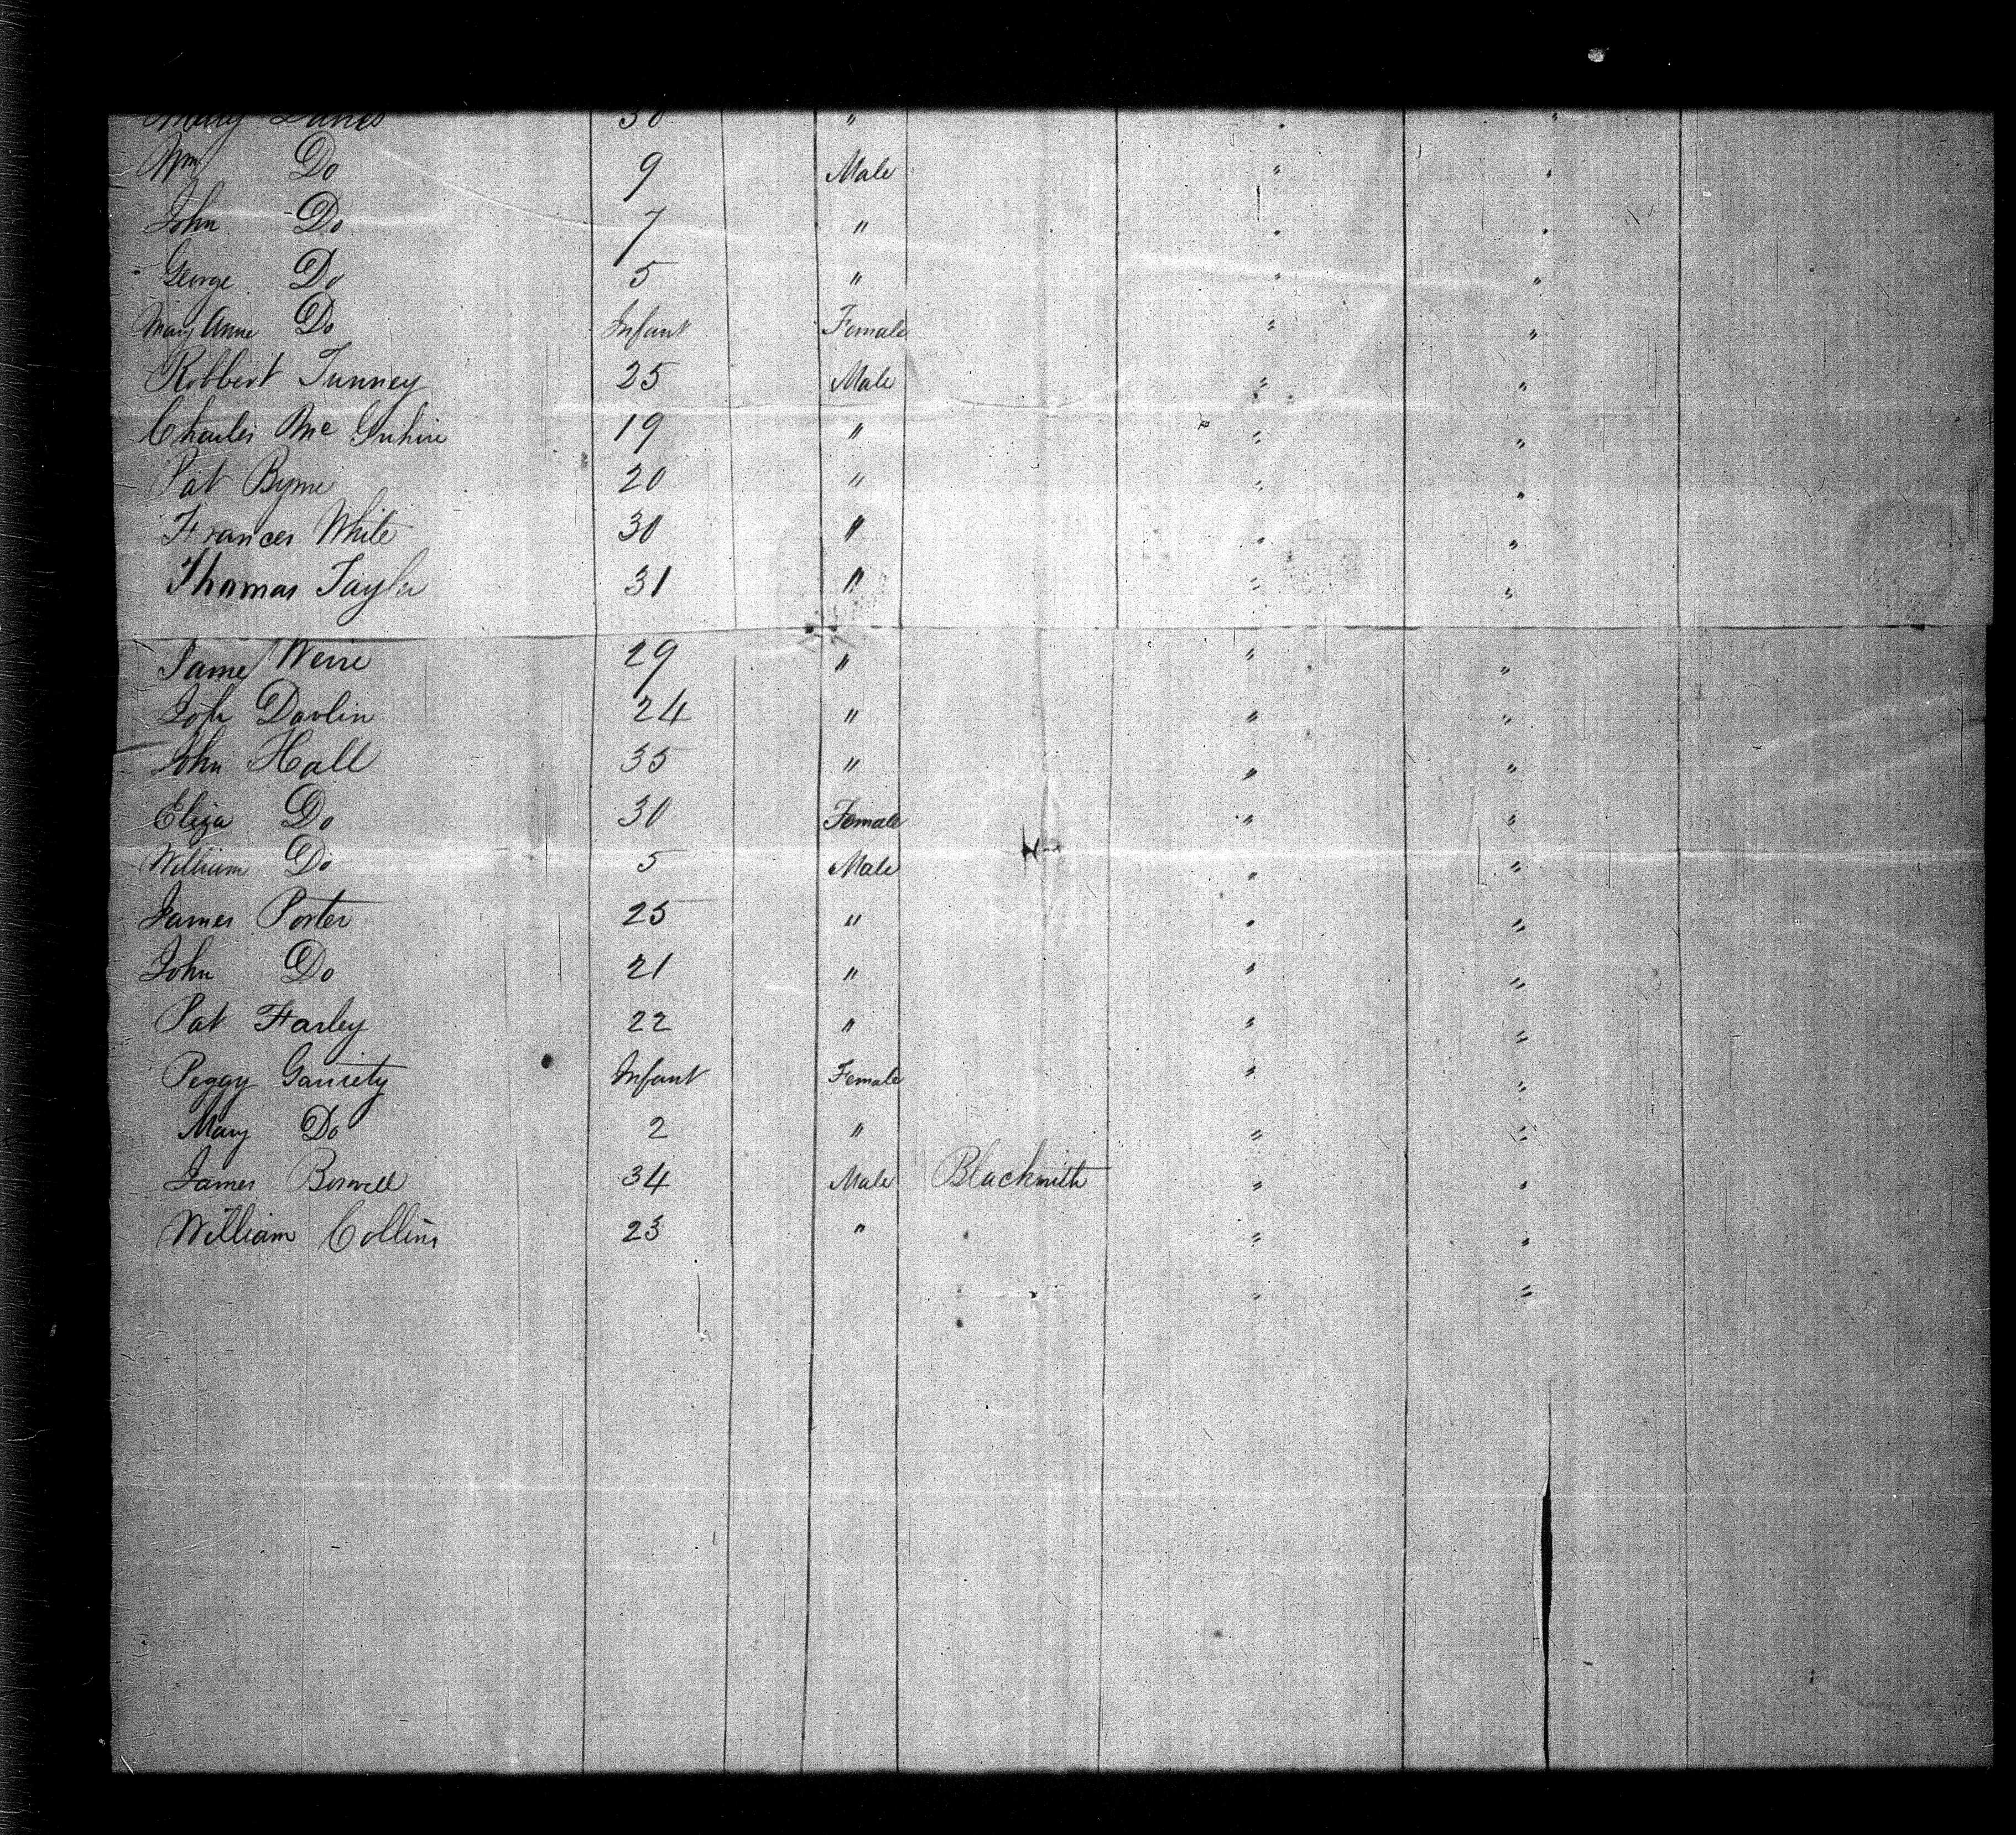 30 " " "
Wm Do 9 Male " "
John Do 7 " " "
George Do 5 " " "
Mary Anne Do Infant Female " "
Robbert Tunney 25 Male " "
Charles Mc 19 " " "
Pat Byrne 20 " " "
Frances White 30 " " "
Thomas Taylor 31 " " "
James Weire 29 " " "
Davlin 24 " " "
John Hall 35 " " "
Eliza Do 30 Female " "
William Do 5 Male " "
James Porter 25 " " "
John Do 21 " " "
Pat Farley 22 " " "
Peggy Garrety Infant Female " "
Mary Do 2 " " "
James Boswell 34 Male Blacksmith " "
William Collins 23 " " "
" "